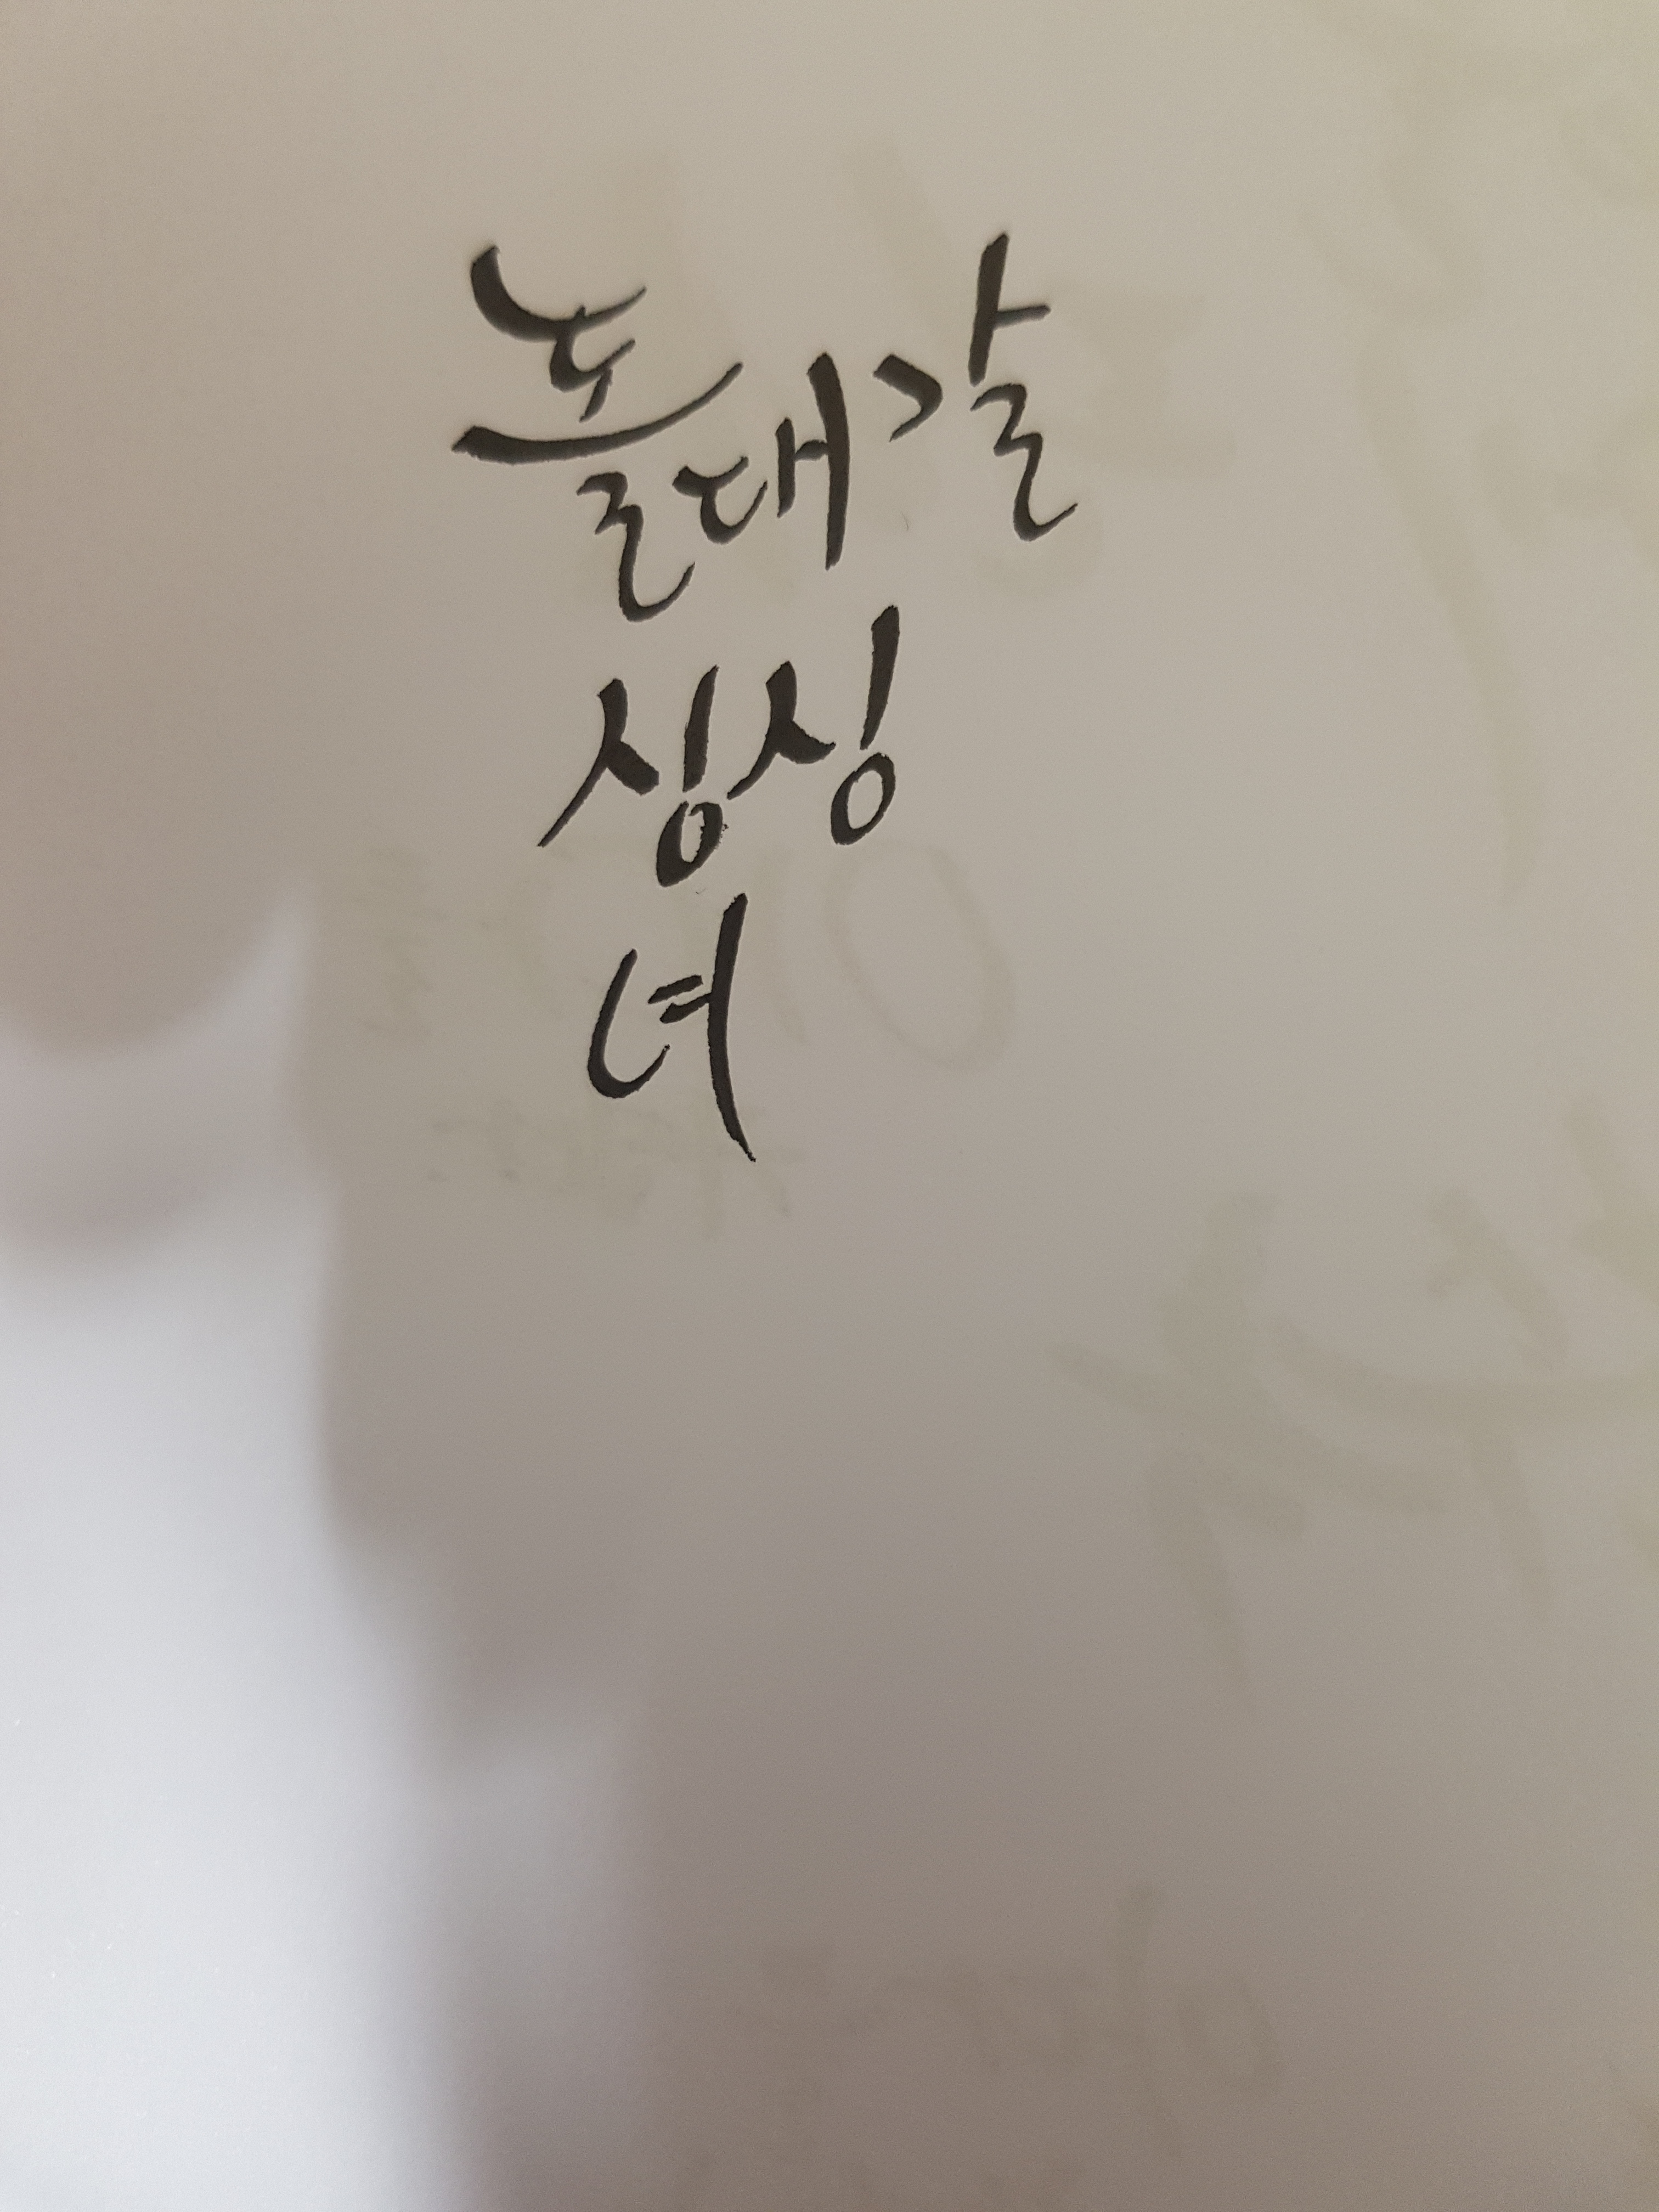 돌대갈
싱싱
녀